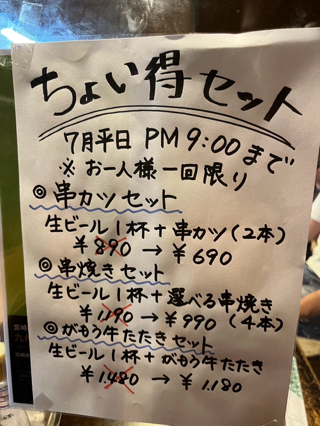 ちょい得セット
7月平日 PM 9:00まで
※ お一人様一回限り
◎串カツセット
生ビール1杯+串カツ(2本)
¥890→¥690
◎串焼きセット
生ビール1杯+選べる串焼き
¥1,190→¥990(4本)
◎がもう牛たたきセット
生ビール1杯+がもう牛たたき
¥1,480→¥1,180
宮崎
九州